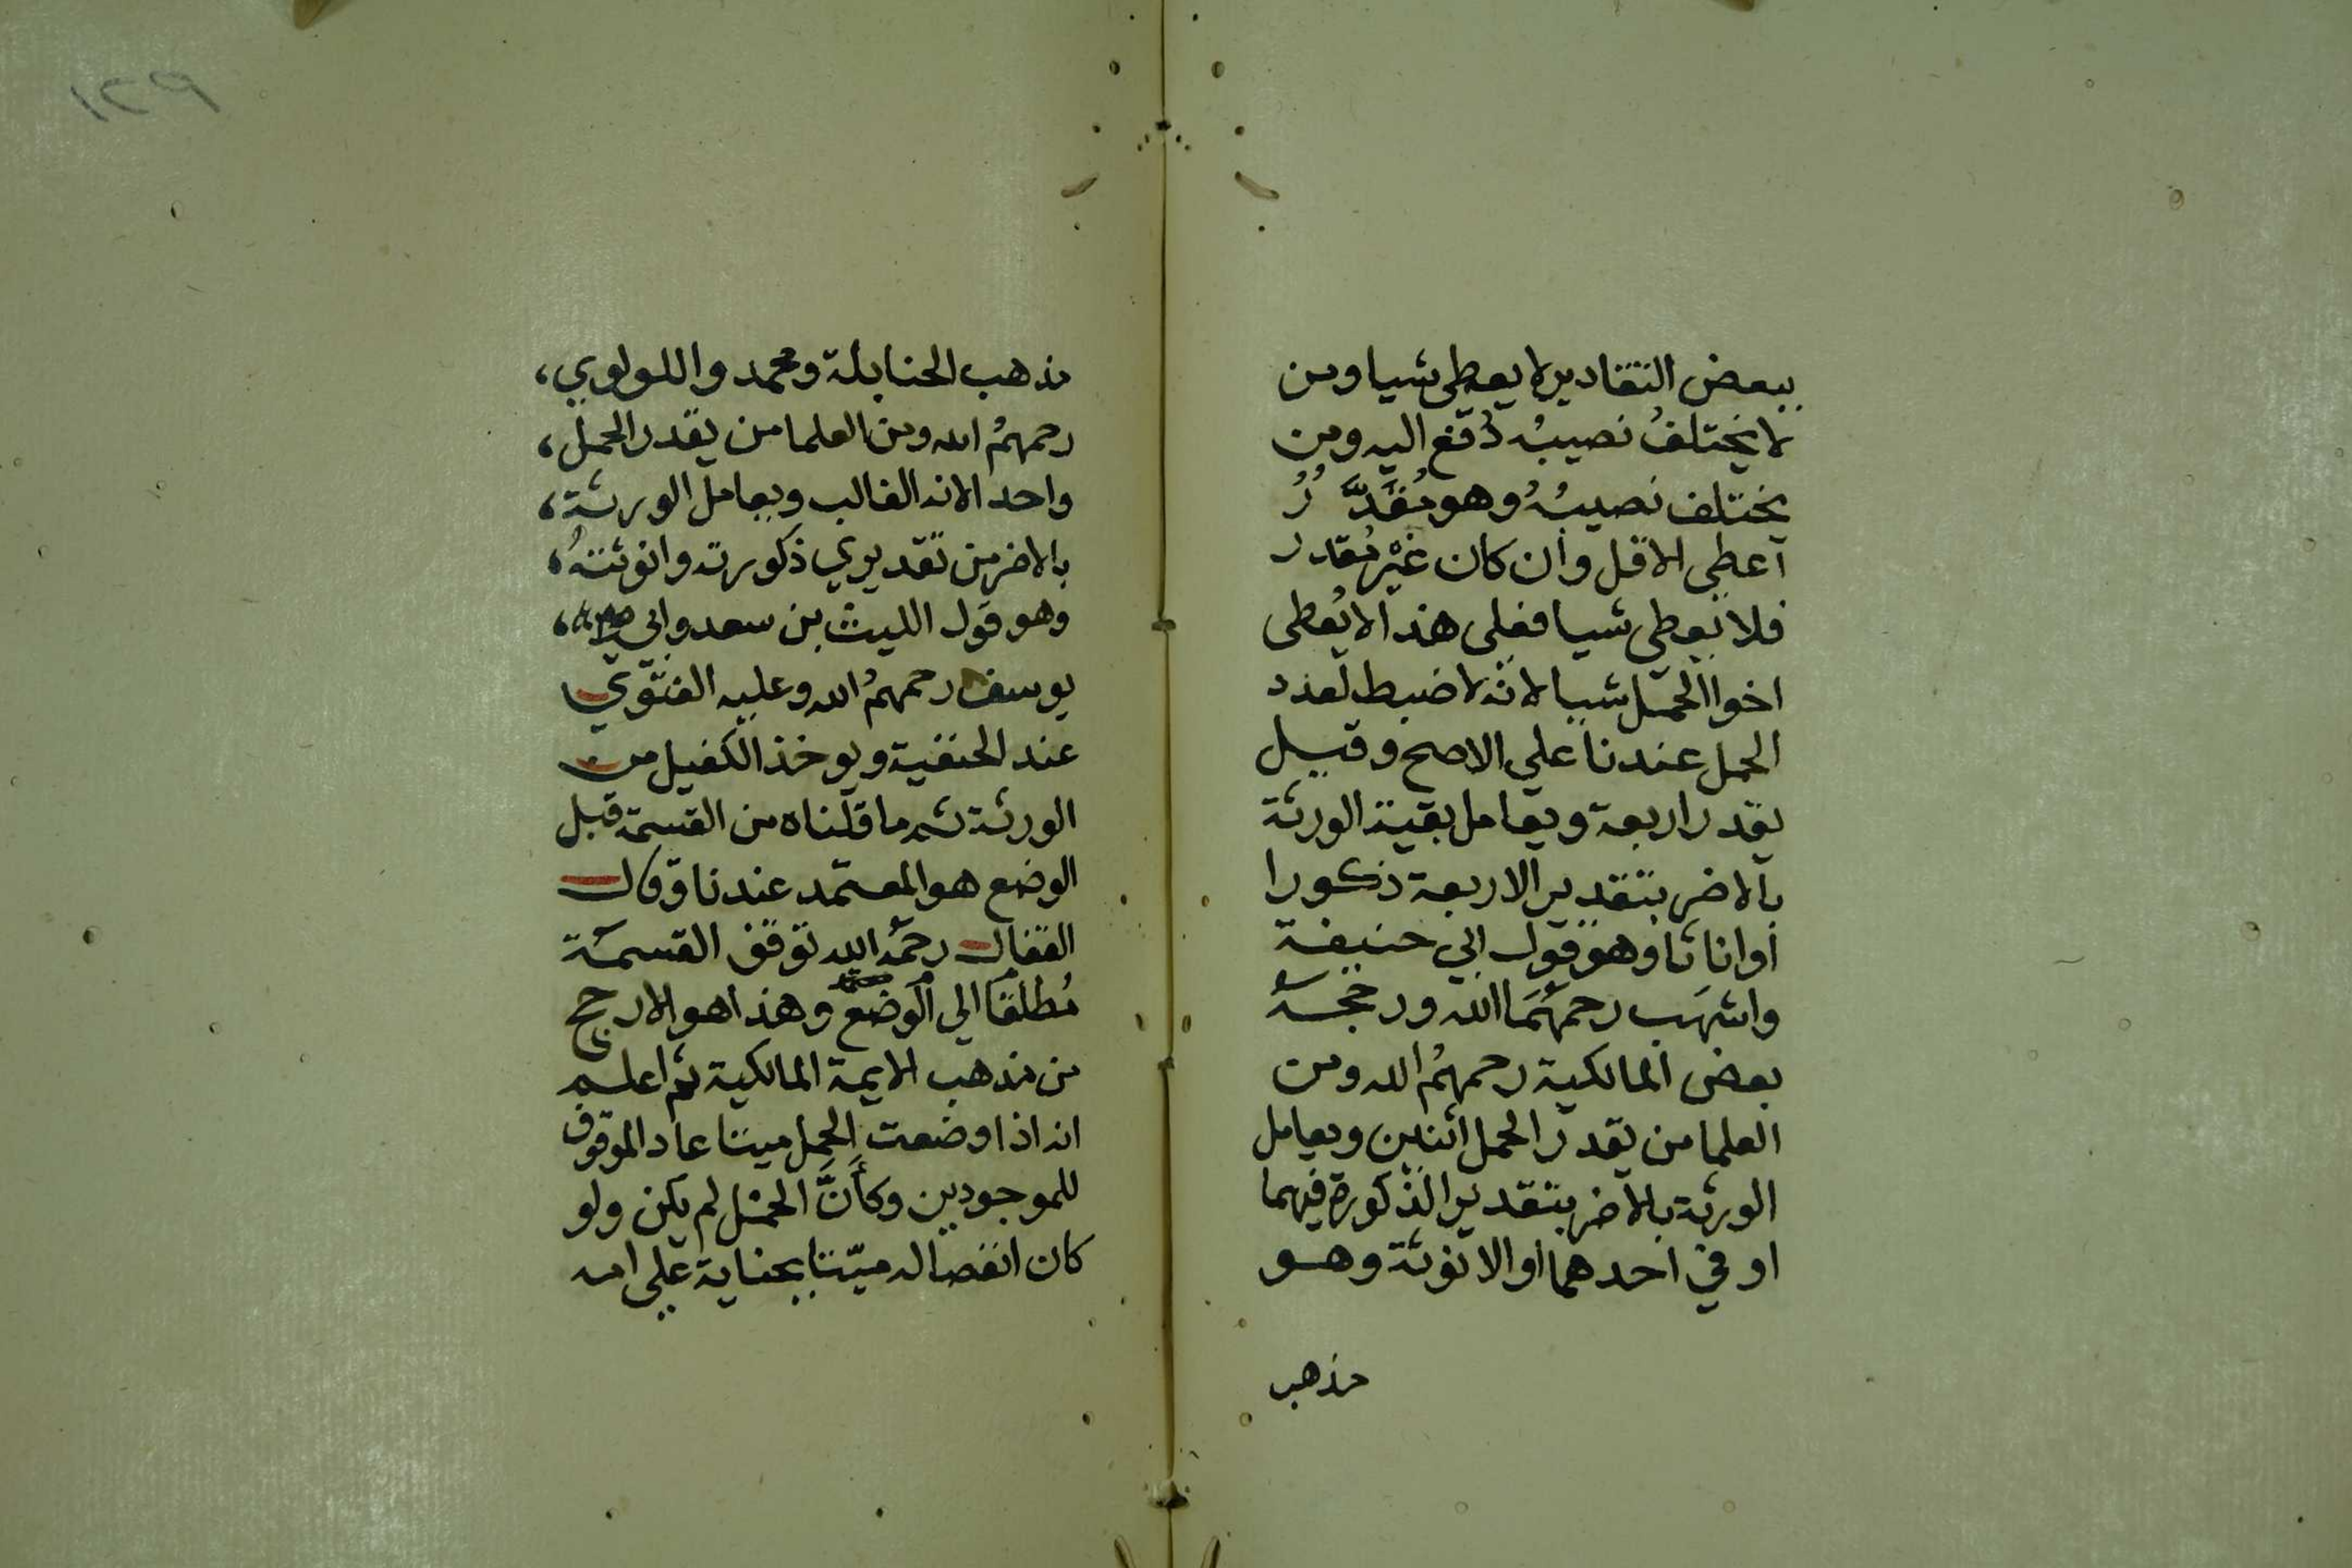 ببعض التقادير لا يعطى شيا ومن
لا يختلفُ نصيبُه دُفع اليه ومن
يختلف نصيبُهُ وهو مُقَدَّرُ
اعطي الاقل وان كان غيْر مُقدر
فلا يعطى شيا فعلى هذا لا يُعطى
اخوا الحمل شيا لانه لا ضبط لعدد
الحمل عندنا علي الاصح وقيل
يقدر اربعة ويعامل بقية الورثة
بالاضر بتقدير الاربعة ذكورا
او اناثا وهو قول ابي حنيفة
واشهَب رحمهُمَا الله ورجحهُ
بعض المالكية رحمهمُ الله ومن
العلما من يقدر الحمل اثنين ويعامل
الورثة بالاضر بتقدير الذكورة فيهما
او في احدهما او الانوثة وهو
مذهب
١٢٩
مذهب الحنابلة ومحمد واللولوي،
رحمهمُ الله ومن العلما من يقدر الحمل،
واحد الانه الغالب ويعامل الورثة،
بالاضر من تقديري ذكورته وانوثتهُ،
وهو قول الليث بن سعد وابي،
يوسف رحمهمُ الله وعليه الفتوي
عند الحنفية ويوخذ الكفيل من
الورثة ثم ما قلناه من القسمة قبل
الوضع هو المعتمد عندنا وقال
القفال رحمهُ الله توقف القسمة
مُطلقًا الي الوضع وهذا هو الارجح
من مذهب الايمة المالكية ثم اعلم
انه اذا وضعت الحمل ميتا عاد الموقوف
للموجودين وكأنَّ الحمْل لم يكن ولو
كان انفصاله ميّتا بجناية علي امه